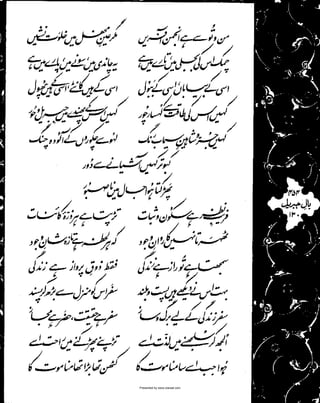 من و تو سے ہے انجمن آفریں مگر عین محفل میں خلوت نشیں
چمک اس کی بجلی میں تارے میں ہے یہ چاندی میں، سونے میں، پارے میں ہے
اسی کے بیاباں، اسی کے ببول اسی کے ہیں کانٹے، اسی کے ہیں پھول
کہیں اس کی طاقت سے کہسار چور کہیں اس کے پھندے میں جبریل و حور
کہیں جرہ شاہین سیماب رنگ لہو سے چکوروں کے آلودہ چنگ
کبوتر کہیں آشیانے سے دور
پھڑکتا ہوا جال میں ناصبور
فریب نظر ہے سکون و ثبات تڑپتا ہے ہر ذرۂ کائنات
ٹھہرتا نہیں کاروان وجود کہ ہر لحظہ ہے تازہ شان وجود
سمجھتا ہے تو راز ہے زندگی فقط ذوق پرواز ہے زندگی
بہت اس نے دیکھے ہیں پست و بلند سفر اس کو منزل سے بڑھ کر پسند
سفر زندگی کے لیے برگ و ساز سفر ہے حقیقت، حضر ہے مجاز
الجھ کر سلجھنے میں لذت اسے تڑپنے پھڑکنے میں راحت اسے
ہوا جب اسے سامنا موت کا کٹھن تھا بڑا تھامنا موت کا
۴۵۳
بال جبریل
۱۳۰
Presented by www.ziaraat.com